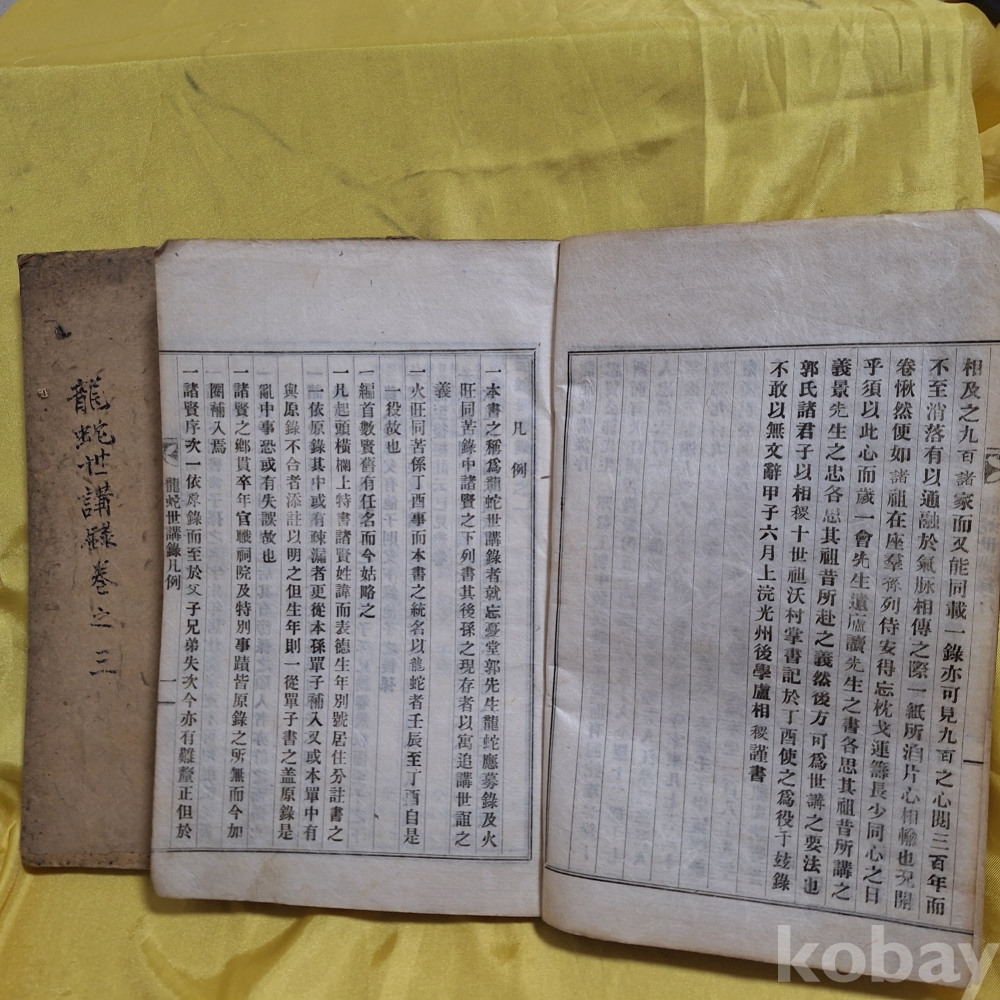 相及之九百諸家而又能同載一錄亦可見九百之心閱三百年而
不至消落有以通融於氣脉相傳之際一紙所泊片心相輸也況開
卷愀然便如諸祖在座羣孫列待安得忘枕戈連籌長少同心之日
乎須以此心而歲一會先生遺廬讀先生之書各思其祖昔所講之
義景先生之忠各思其祖昔所赴之義然後方可爲世講之要法也
郭氏諸君子以相稷十世祖沃村掌書記於丁酉使之爲役于玆錄
不敢以無文辭甲子六月上浣光州後學盧相稷謹書
凡例
一本書之稱爲龍蛇世講錄者就忘憂堂郭先生龍蛇應募錄及火
旺同苦錄中諸賢之下列書其後孫之現存者以寓追講世誼之
義
一火旺同苦係丁酉事而本書之統名以龍蛇者壬辰至丁酉自是
一役故也
一編首數賢舊有任名而今姑略之
一凡起頭橫欄上特書諸賢姓諱而表德生年別號居住分註書之
一依原錄其中或有疎漏者更從本孫單子補入又或本單中有
與原錄不合者添註以明之但生年則一從單子書之盖原錄是
亂中事恐或有失誤故也
一諸賢之鄕貫卒年官職祠院及特別事蹟皆原錄之所無而今加
圈補入焉
一諸賢序次一依原錄而至於父子兄弟失次今亦有難釐正但於
龍蛇世講錄凡例
一
龍蛇世講錄卷之三
kobay